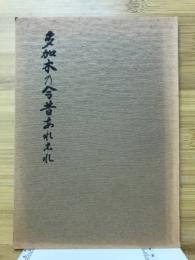 多加木の今昔あれこれ